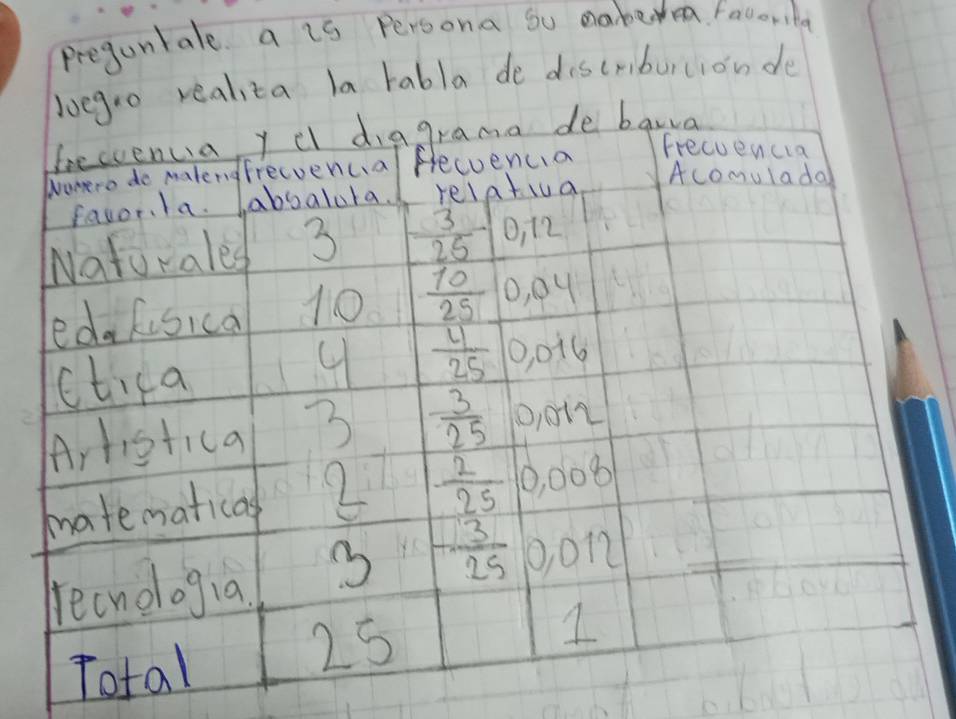 preguntale a 25 Persona su favorita
luego realiza la tabla de distribución de
frecuencia y el diagrama de barra
Numero de materia favorita. frecuencia absoluta. Frecuencia relativa Frecuencia Acomulada
Naturales 3 3/25 0,12
eda fisica 10 10/25 0,04
Etica 4 4/25 0,016
Artistica 3 3/25 0,012
matematicas 2 2/25 0,008
Tecnologia. 3 3/25 0,012
Total 25 1